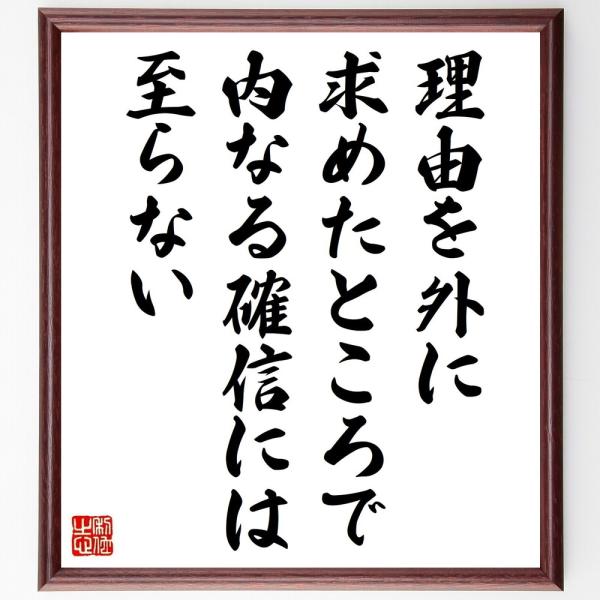 理由を外に
求めたところで
内なる確信には
至らない